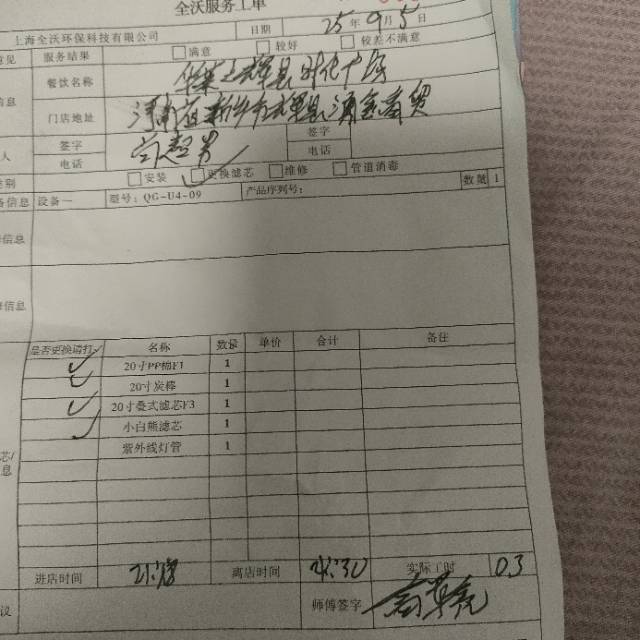 全沃服务工单
上海全沃环保科技有限公司 日期 25年9月5日
意见 服务结果 满意 较好 较差不满意
信息 餐饮名称
门店地址
人 签字 签字
电话 电话
类别 安装 更换滤芯 维修 管道消毒
备信息 设备一 型号：QG-U4-09 产品序列号： 数量 1
信息
信息
是否更换请打✓ 名称 数量 单价 合计 备注
✓ 20寸PP棉F1 1
✓ 20寸炭棒 1
✓ 20寸叠式滤芯F3 1
✓ 小白熊滤芯 1
紫外线灯管 1
芯/
息
进店时间 离店时间 实际工时 03
议 师傅签字